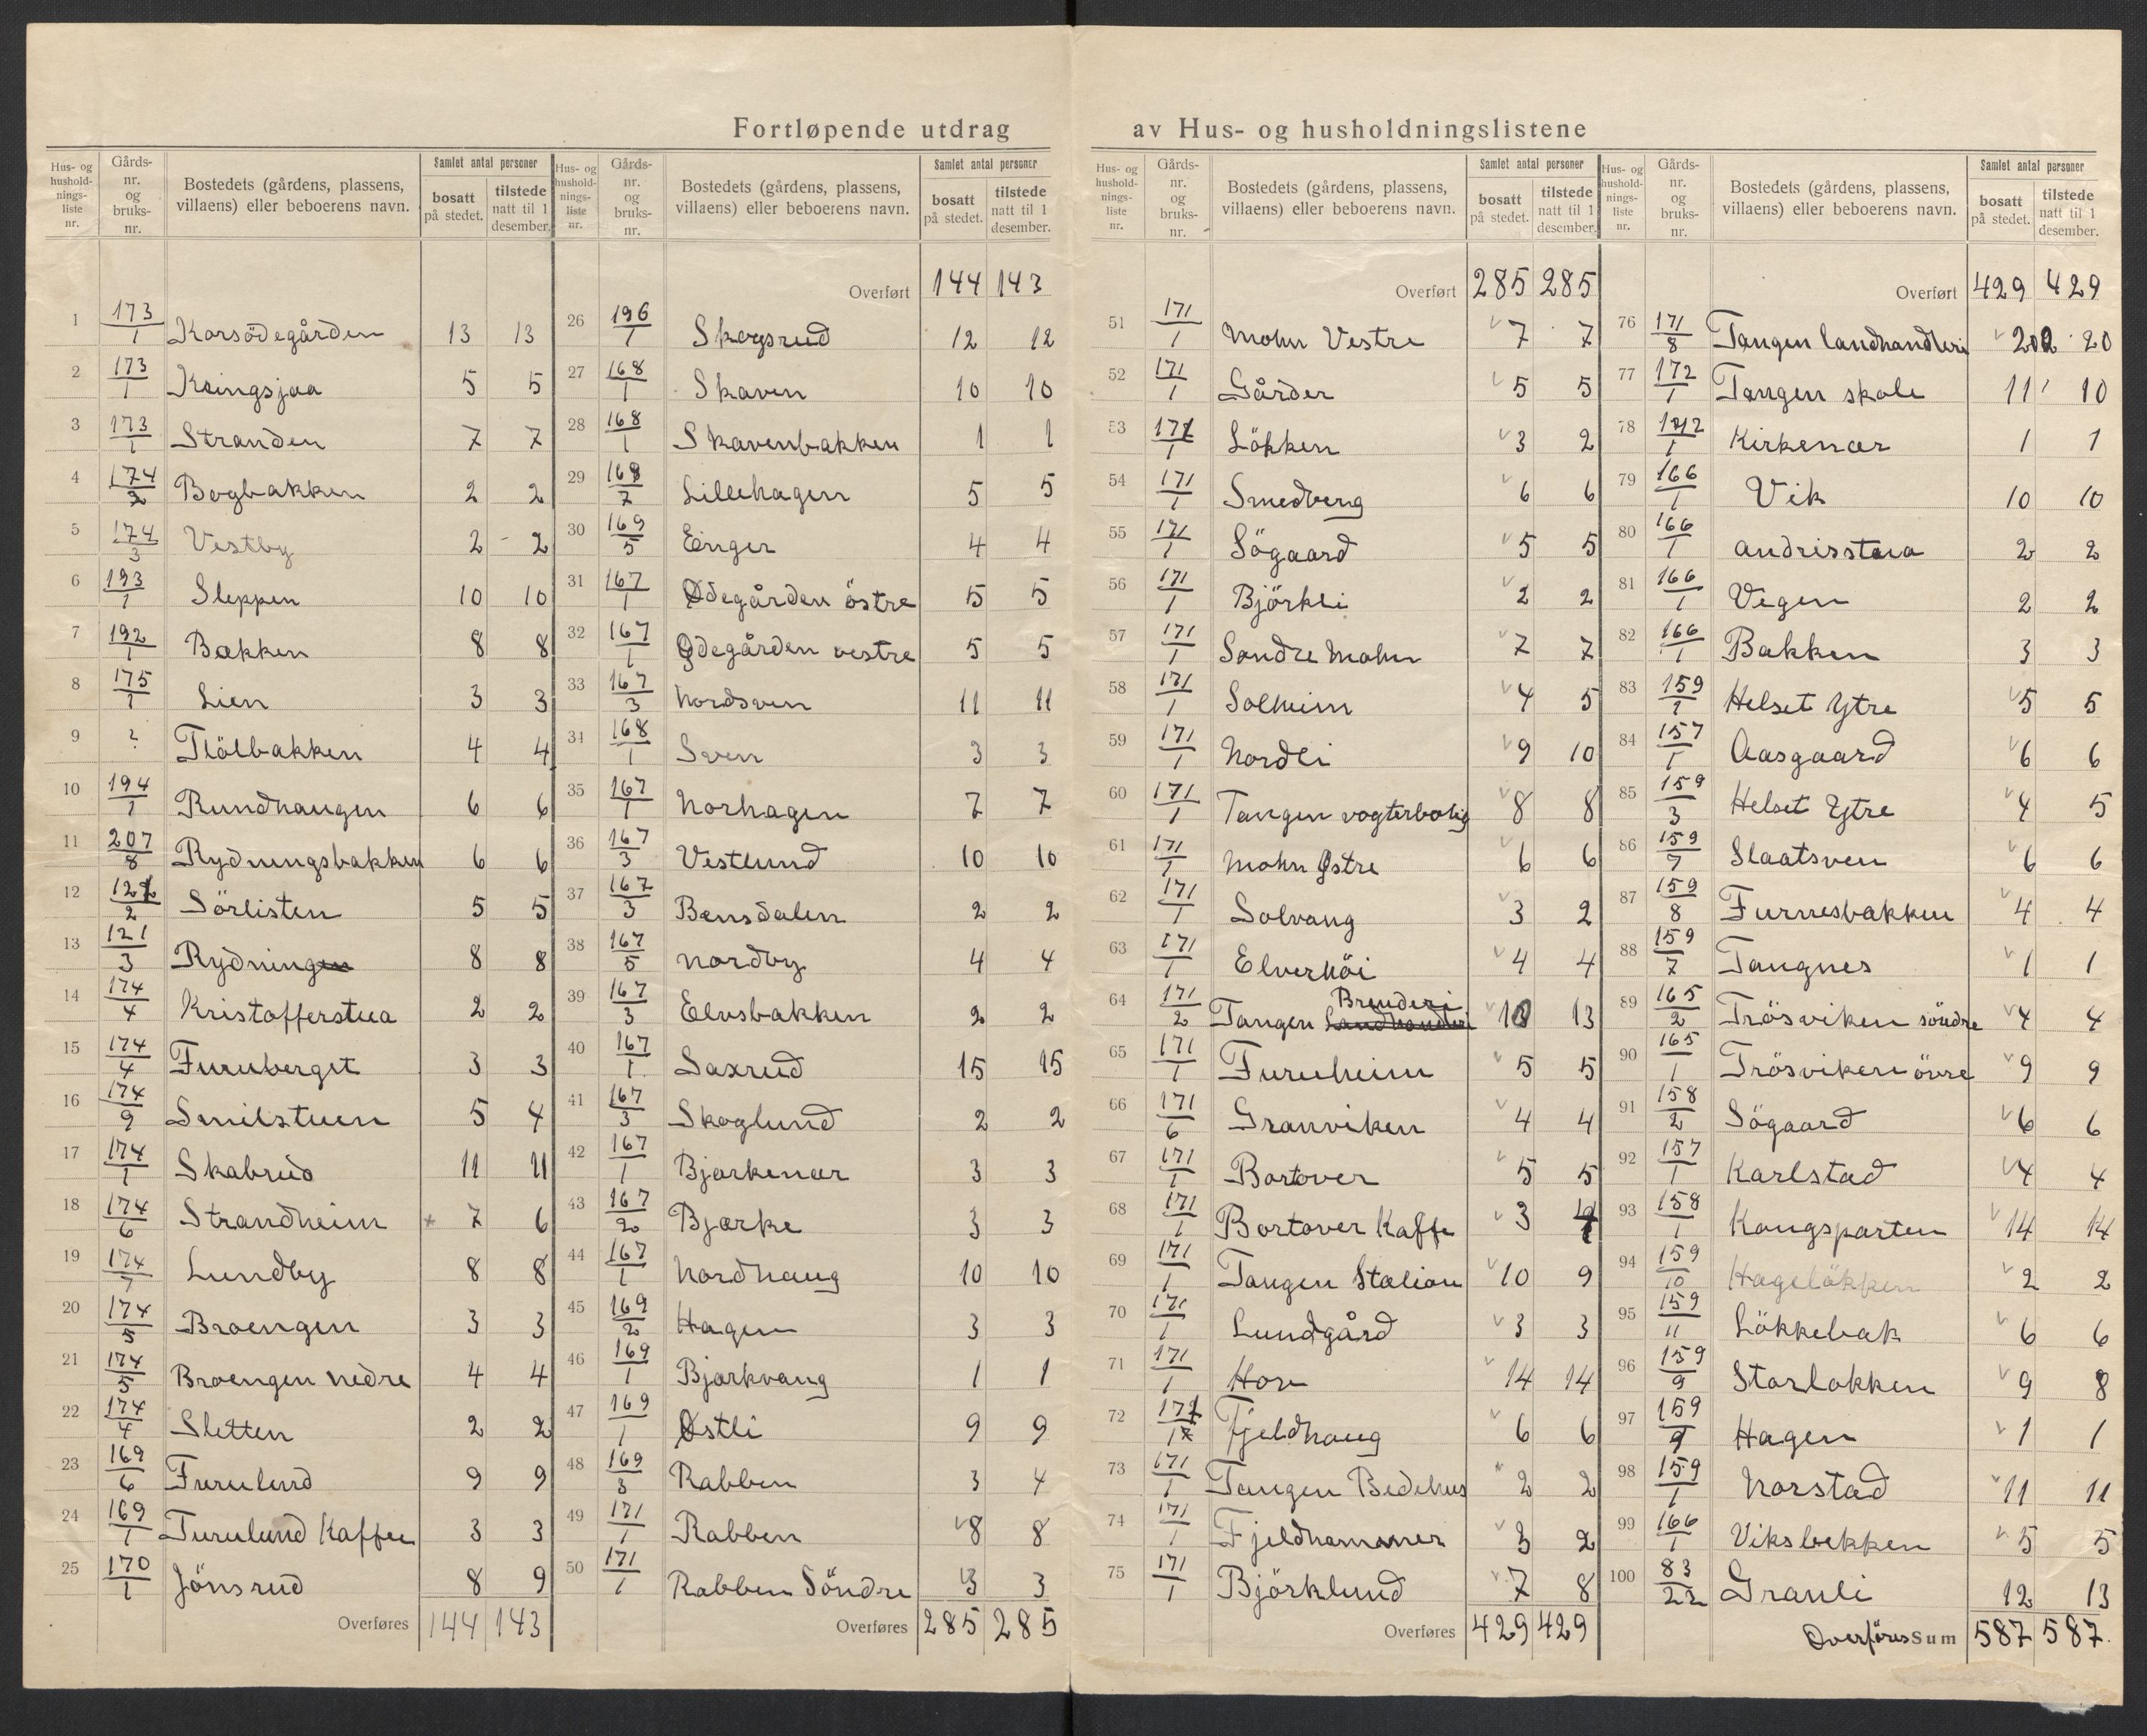 Fortløpende utdrag av Hus- og husholdningslistene
Hus- og husholdningsliste nr. | Gårds-nr. og bruks-nr. | Bostedets (gårdens, plassens, villaens) eller beboerens navn. | Samlet antal personer bosatt på stedet. | tilstede natt til 1 desember.
1 173/1 Korsödegården 13 13
2 173/1 Kringsjaa 5 5
3 173/1 Stranden 7 7
4 174/2 Bogbakken 2 2
5 174/3 Vestby 2 - 2
6 193/1 Sleppen 10 10
7 192/1 Bakken 8 8
8 175/1 Lien 3 3
9 ? Tlölbakken 4 4
10 194/1 Rundhaugen 6 6
11 207/8 Rydningsbakken 6 6
12 121/2 Sörlisten 5 5
13 121/3 Rydningen 8 8
14 174/4 Kristofferstua 2 2
15 174/4 Furuberget 3 3
16 174/9 Smilstuen 5 4
17 174/1 Skabrud 11 11
18 174/6 Strandheim x 7 6
19 174/7 Lundby 8 8
20 174/5 Broengen 3 3
21 174/5 Broengen nedre 4 4
22 174/4 Sletten 2 2
23 169/6 Furulund 9 9
24 169/1 Furulund Kaffee 3 3
25 170/1 Jönsrud 8 9
Overføres 144 143
Hus- og husholdningsliste nr. | Gårds-nr. og bruks-nr. | Bostedets (gårdens, plassens, villaens) eller beboerens navn. | Samlet antal personer bosatt på stedet. | tilstede natt til 1 desember.
Overført 144 143
26 196/1 Skogsrud 12 12
27 168/1 Skaven 10 10
28 168/1 Skavenbakken 1 1
29 168/7 Lillehagen 5 5
30 169/5 Einger 4 4
31 167/1 Ødegården östre 5 5
32 167/1 Ødegården vestre 5 5
33 167/3 Nordsven 11 11
34 168/1 Sven 3 3
35 167/1 Norhagen 7 7
36 167/3 Vestlund 10 10
37 167/3 Bensdalen 2 2
38 167/5 Nordby 4 4
39 167/3 Elvsbakken 2 2
40 167/1 Saxrud 15 15
41 167/3 Skoglund 2 2
42 167/1 Bjørkenær 3 3
43 167/20 Bjørke 3 3
44 167/1 Nordhaug 10 10
45 169/2 Hagen 3 3
46 169/1 Bjørkvang 1 1
47 169/1 Østli 9 9
48 169/3 Rabben 3 4
49 171/1 Rabben 8 8
50 171/1 Rabben Söndre 3 3
Overføres 285 285
Hus- og husholdningsliste nr. | Gårds-nr. og bruks-nr. | Bostedets (gårdens, plassens, villaens) eller beboerens navn. | Samlet antal personer bosatt på stedet. | tilstede natt til 1 desember.
Overført 285 285
51 171/1 Mohn Vestre 7 7
52 171/1 Gårder 5 5
53 171/1 Lökken 3 2
54 171/1 Smedberg 6 6
55 171/1 Sögaard 5 5
56 171/1 Björkli 2 2
57 171/1 Søndre Mohn 7 7
58 171/1 Solheim 4 5
59 171/1 Nordli 9 10
60 171/1 Tangen vogterbolig 8 8
61 171/1 Mohn Østre 6 6
62 171/1 Solvang 3 2
63 171/1 Elverhöi 4 4
64 171/2 Tangen Landhandleri Brenderi 10 13
65 171/1 Furuheim 5 5
66 171/6 Granviken 4 4
67 171/1 Bortover 5 5
68 171/1 Bortover Kaffe 3 4
69 171/1 Tangen Station 10 9
70 171/1 Lundgård 3 3
71 171/1 Hov 14 14
72 171/1 Fjeldhaug 6 6
73 171/1 Tangen Bedehus 2 2
74 171/1 Fjeldhammer 3 2
75 171/1 Björklund 7 8
Overføres 429 429
Hus- og husholdningsliste nr. | Gårds-nr. og bruks-nr. | Bostedets (gårdens, plassens, villaens) eller beboerens navn. | Samlet antal personer bosatt på stedet. | tilstede natt til 1 desember.
Overført 429 429
76 171/8 Tangen landhandleri 20 20
77 172/1 Tangen skole 11 10
78 172/1 Kirkenær 1 1
79 166/1 Vik 10 10
80 166/1 Andrisstua 2 2
81 166/1 Vegen 2 2
82 166/1 Bakken 3 3
83 159/1 Helset Ytre 5 5
84 157/1 Aasgaard 6 6
85 159/3 Helset Ytre 4 5
86 159/7 Slaatsven 6 6
87 159/8 Furnesbakken 4 4
88 159/7 Tangnes 1 1
89 165/2 Trösviken söndre 4 4
90 165/1 Trösviken övre 9 9
91 158/2 Sögaard 6 6
92 157/1 Karlstad 4 4
93 158/1 Kongsparten 14 14
94 159/10 Hagelökken 2 2
95 159/11 Lökkebak 6 6
96 159/9 Storløkken 9 8
97 159/9 Hagen 1 1
98 159/1 Norstad 11 11
99 166/1 Viksbekken 5 5
100 83/22 Granli 12 13
Overföres Sum 587 587